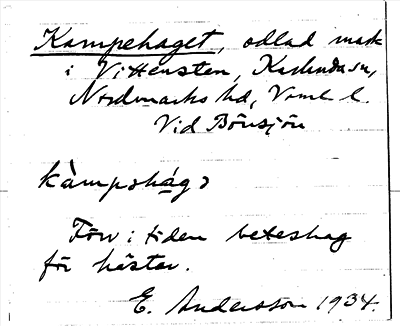 Kampehaget, odlad mark
i Vittensten, Karlanda sn,
Nordmarks hd, Vrml l.
Vid Bönsjön
kàmpshágə
Förr i tiden beteshag
för hästar.
E. Andersson 1934.